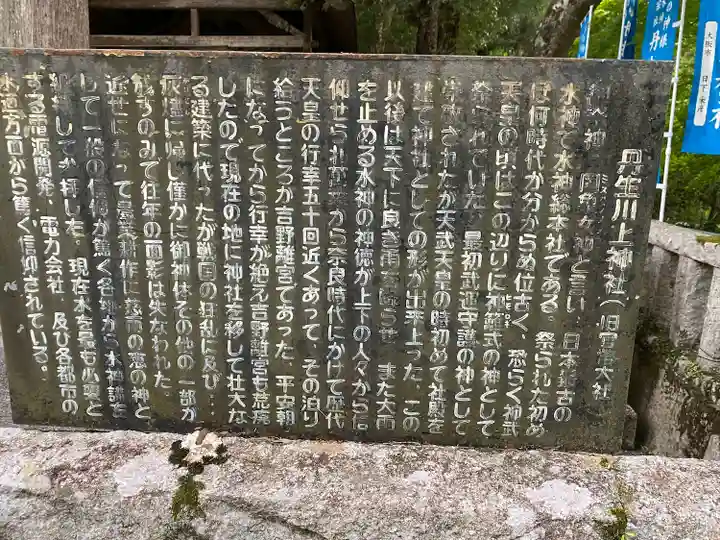 丹生川上神社(旧官幣大社)
水神で水神総本社である。祭られた初め
は何時代か分からぬ位古く、恐らく神武
天皇の頃はこの辺りに神籬式の神として
祭られていた。最初武運守護の神として
されたが天武天皇の時初めて社殿を
建て神社としての形が出来上った。この
以後は天下に良き雨を降らせ、また大雨
を止める水神の神徳が上下の人々から
仰せられ から奈良時代にかけて歴代
天皇の行幸五十回近くあって、その泊り
給うところが吉野離宮であった。平安朝
になってから行幸が絶え吉野離宮も荒廃
したので現在の地に神社を移して壮大な
る建築に代ったが戦国の狂乱に及び
灰燼に帰し僅かに御神体その他の一部が
のみで往年の面影は失なわれた。
近世になって農業耕作に慈雨の恵の神と
して一般の信仰が篤く各地から水神講を
した。現在水を最も必要と
する電源開発、電力会社、及び各都市の
水道方面から篤く信仰されている。
大阪市 日下